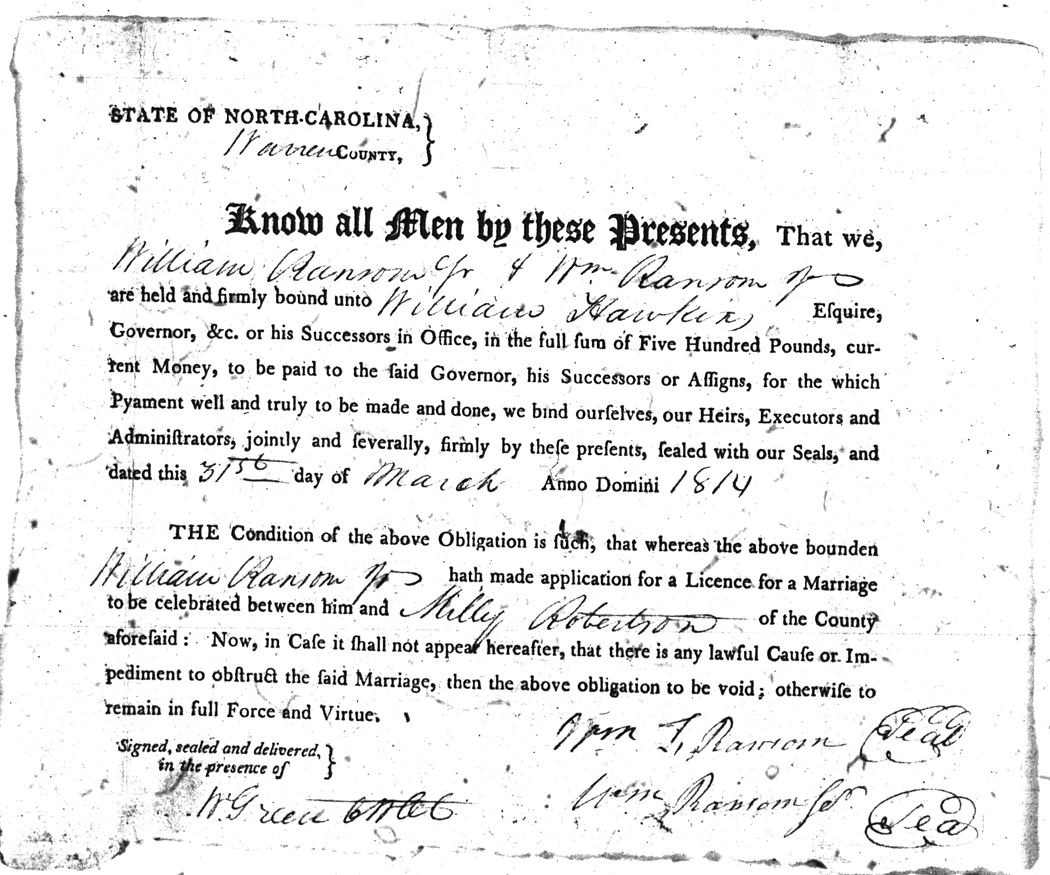 STATE OF NORTH-CAROLINA,
Warren COUNTY,
Know all Men by these Presents, That we,
William Ransom Jr & Wm Ransom
are held and firmly bound unto William Hawkins Eſquire,
Governor, &c. or his Succeſſors in Office, in the full ſum of Five Hundred Pounds, cur-
rent Money, to be paid to the ſaid Governor, his Succeſſors or Aſſigns, for the which
Pyament well and truly to be made and done, we bind ourſelves, our Heirs, Executors and
Adminiſtrators, jointly and ſeverally, firmly by theſe preſents, ſealed with our Seals, and
dated this 31st day of March Anno Domini 1814
THE Condition of the above Obligation is ſuch, that whereas the above bounden
William Ransom hath made application for a Licence for a Marriage
to be celebrated between him and Milly Robertson of the County
aforeſaid: Now, in Caſe it ſhall not appear hereafter, that there is any lawful Cauſe or Im-
pediment to obſtruct the ſaid Marriage, then the above obligation to be void; otherwiſe to
remain in full Force and Virtue.
Wm Ransom Seal
Signed, sealed and delivered,
in the presence of
Wm Ransom Sr Seal
W Green